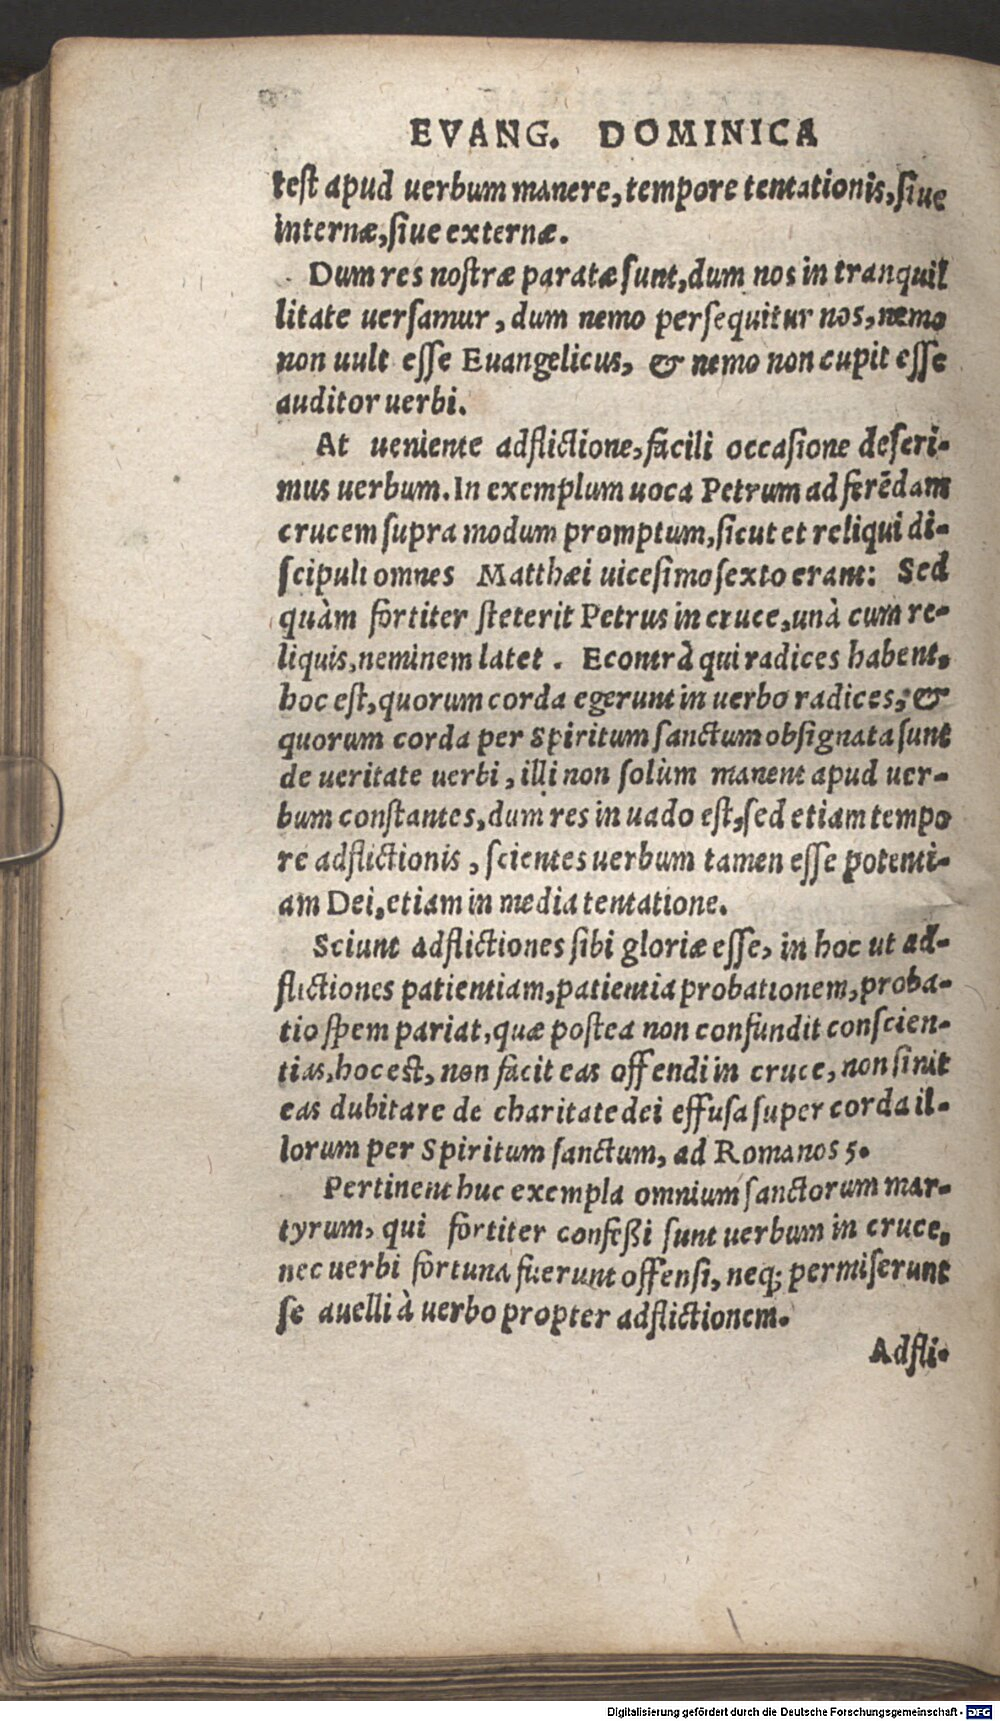 EVANG. DOMINICA
test apud uerbum manere, tempore tentationis, siue
internæ, siue externæ.
Dum res nostræ paratæ sunt, dum nos in tranquil
litate uersamur, dum nemo persequitur nos, nemo
non uult esse Euangelicus, & nemo non cupit esse
auditor uerbi.
At ueniente adflictione, facili occasione deseri-
mus uerbum. In exemplum uoca Petrum ad ferēdam
crucem supra modum promptum, sicut et reliqui di-
scipuli omnes Matthæi uicesimo sexto erant: Sed
quàm fortiter steterit Petrus in cruce, unà cum re-
liquis, neminem latet. Econtrà qui radices habent,
hoc est, quorum corda egerunt in uerbo radices, &
quorum corda per Spiritum sanctum obsignata sunt
de ueritate uerbi, illi non solùm manent apud uer-
bum constantes, dum res in uado est, sed etiam tempo
re adflictionis, scientes uerbum tamen esse potenti-
am Dei, etiam in media tentatione.
Sciunt adflictiones sibi gloriæ esse, in hoc ut ad-
flictiones patientiam, patientia probationem, proba-
tio spem pariat, quæ postea non confundit conscien-
tias, hoc est, non facit eas offendi in cruce, non sinit
eas dubitare de charitate dei effusa super corda il-
lorum per Spiritum sanctum, ad Romanos 5.
Pertinent huc exempla omnium sanctorum mar-
tyrum, qui fortiter confeßi sunt uerbum in cruce,
nec uerbi fortuna fuerunt offensi, neq; permiserunt
se auelli à uerbo propter adflictionem.
Adfli-
Digitalisierung gefördert durch die Deutsche Forschungsgemeinschaft - DFG